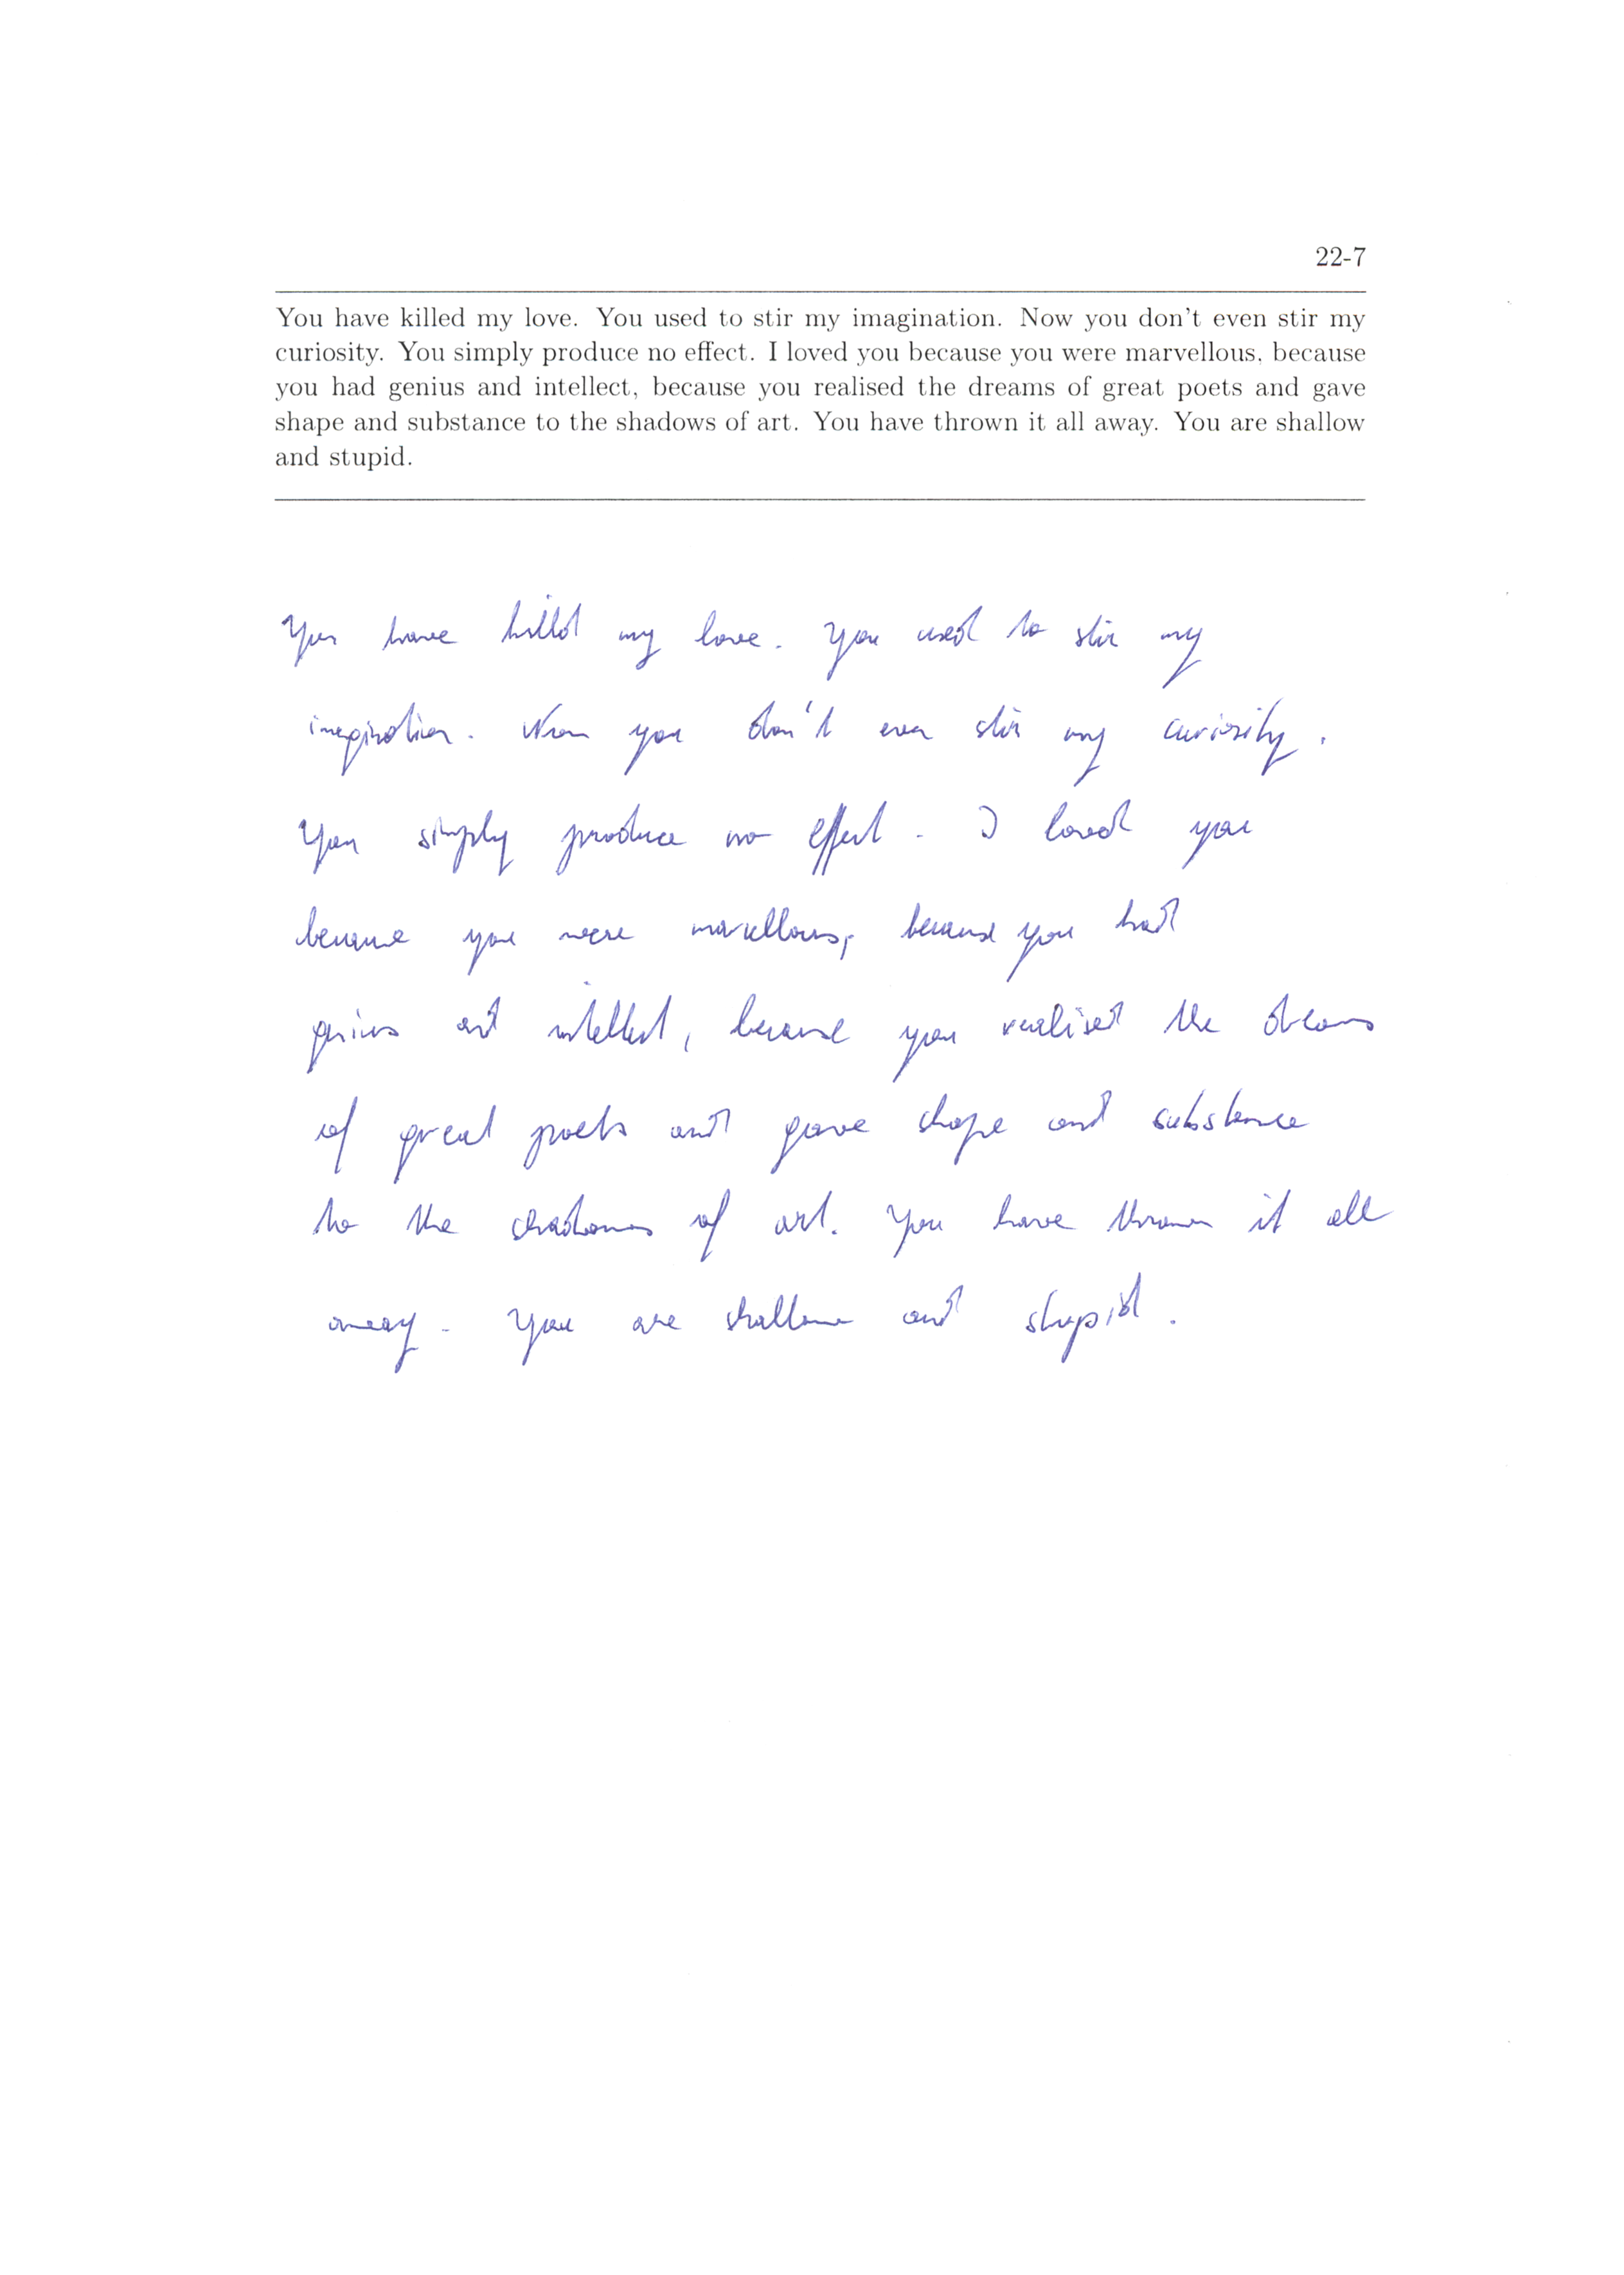 22-7
You have killed my love. You used to stir my imagination. Now you don't even stir my
curiosity. You simply produce no effect. I loved you because you were marvellous, because
you had genius and intellect, because you realised the dreams of great poets and gave
shape and substance to the shadows of art. You have thrown it all away. You are shallow
and stupid.
You have killed my love. You used to stir my
imagination. Now you don't even stir my curiosity.
You simply produce no effect. I loved you
because you were marvellous, because you had
genius and intellect, because you realised the dreams
of great poets and gave shape and substance
to the shadows of art. You have thrown it all
away. You are shallow and stupid.